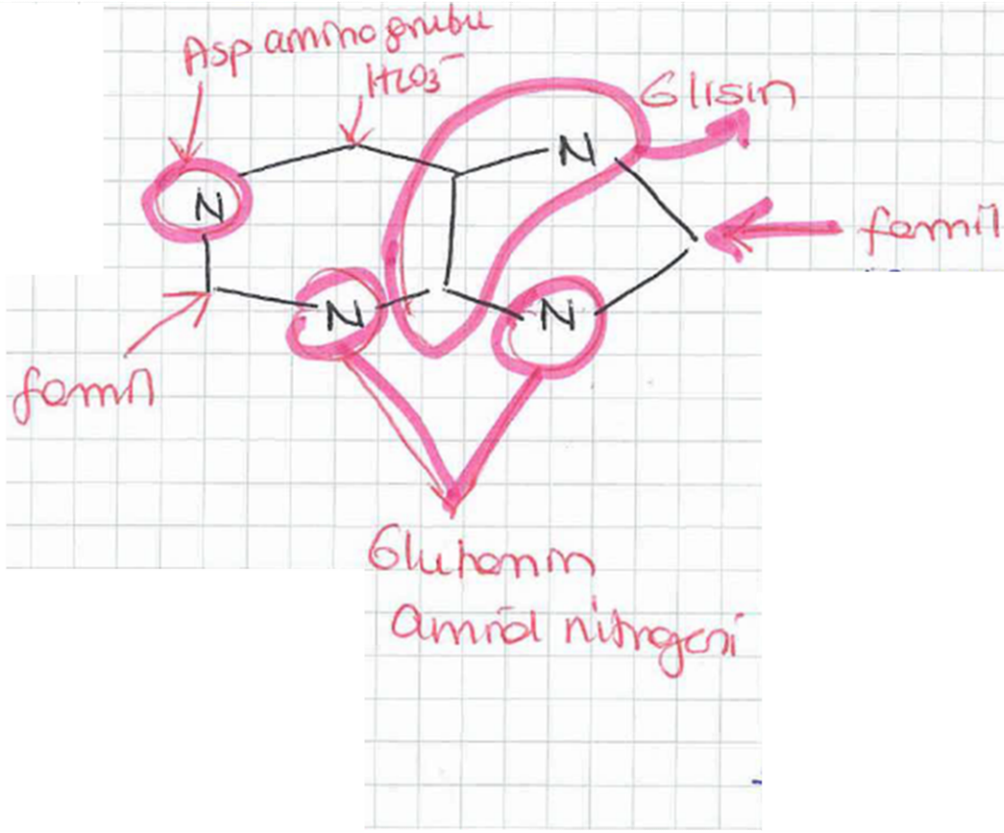 Asp amino grubu
HCO3-
Glisin
N
N
formil
N
N
formil
Glutamin
amid nitrogeni